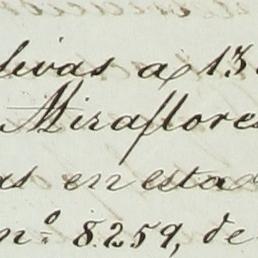 livas a 13
Miraflores
as en esta
nº 8259, de